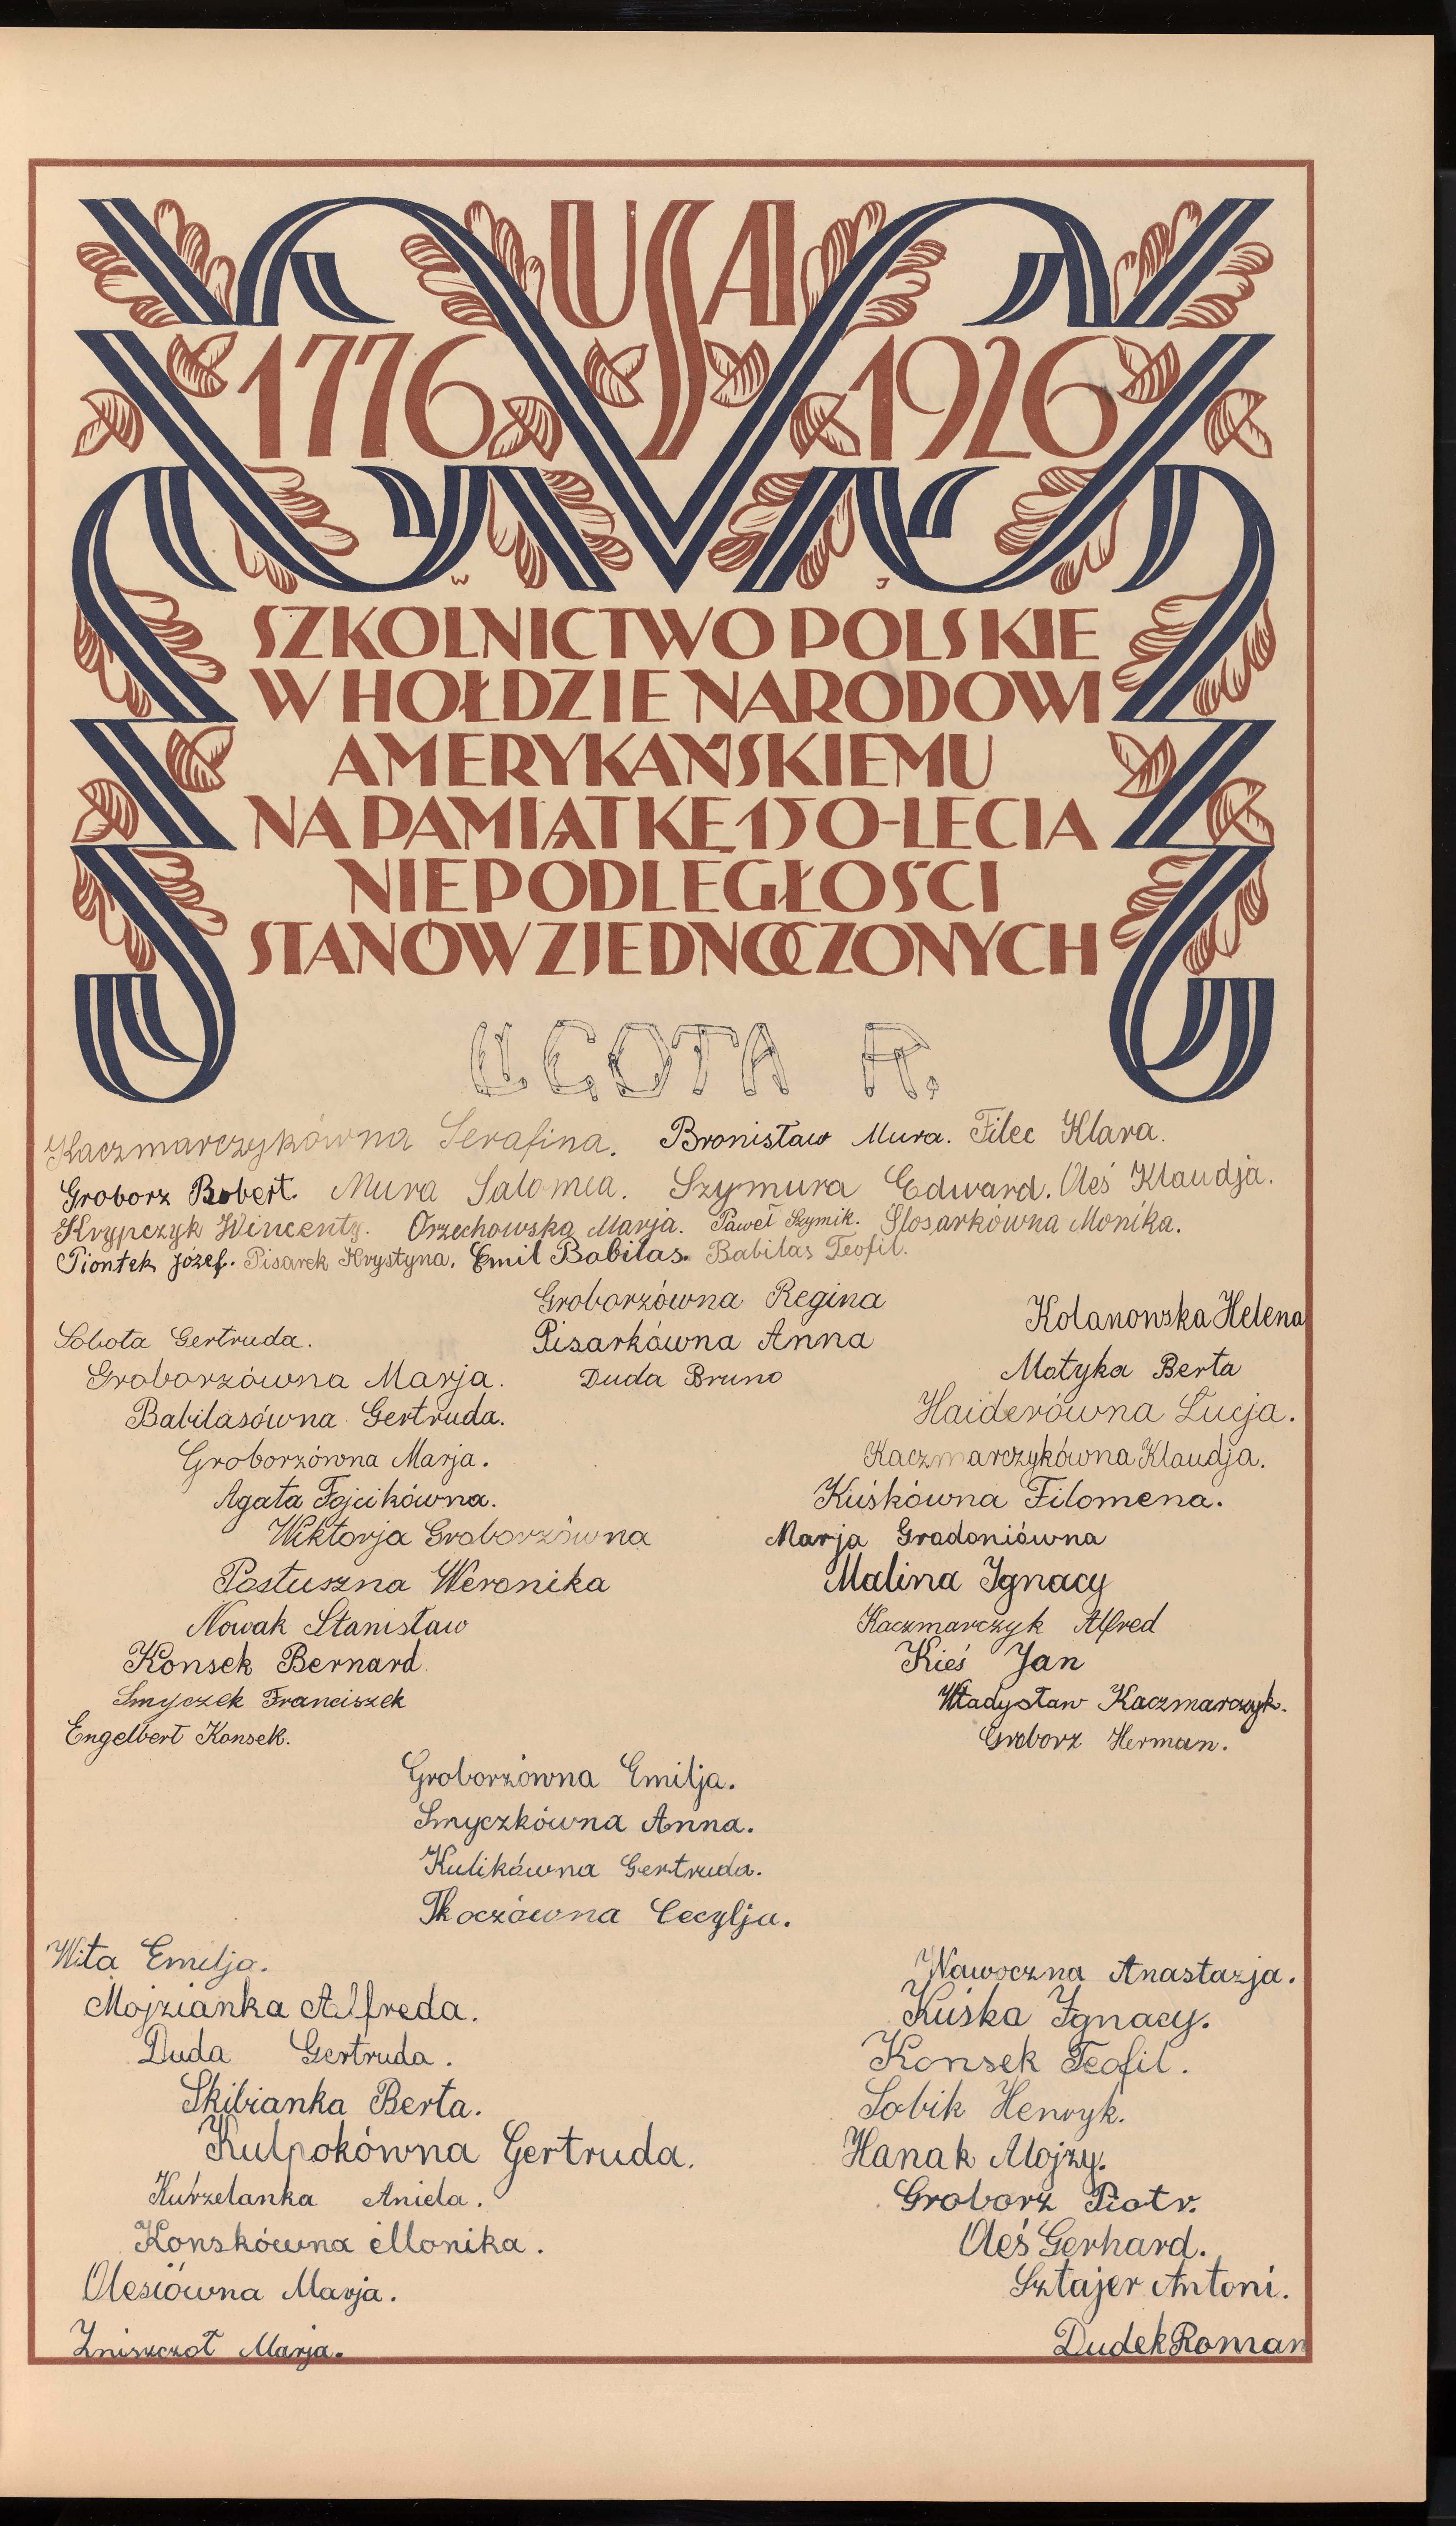 USA
1776 1926
W J
SZKOLNICTWO POLSKIE
W HOŁDZIE NARODOWI
AMERYKAŃSKIEMU
NA PAMIĄTKĘ 150-LECIA
NIEPODLEGŁOŚCI
STANÓW ZJEDNOCZONYCH
LIGOTA R.
Kaczmarczykówna Serafina. Bronisław Mura. Filec Klara.
Groborz Robert. Mura Salomea. Szymura Edward. Oleś Klaudja.
Krypczyk Wincenty. Orzechowska Marja. Paweł Szymik. Slosarkówna Monika.
Piontek Józef. Pisarek Krystyna. Emil Babilas. Babilas Teofil.
Groborzówna Regina
Kolanowska Helena
Sobota Gertruda.
Pisarkówna Anna
Groborzówna Marja.
Duda Bruno
Motyka Berta
Babilasówna Gertruda.
Haiderówna Łucja.
Groborzówna Marja.
Kaczmarczykówna Klaudja.
Agata Fojcikówna.
Kuśkówna Filomena.
Wiktorja Groborzówna
Marja Gradoniówna
Postuszna Weronika
Malina Ignacy
Nowak Stanisław
Kaczmarczyk Alfred
Konsek Bernard
Kieś Jan
Smyczek Franciszek
Władysław Kaczmarczyk.
Engelbert Konsek.
Groborz Herman.
Groborzówna Emilja.
Smyczkówna Anna.
Kulikówna Gertruda.
Tkoczówna Cecylja.
Wita Emilja.
Nawoczna Anastazja.
Mojzianka Alfreda.
Kuśka Ignacy.
Duda Gertruda.
Konsek Teofil.
Skibianka Berta.
Sobik Henryk.
Kulpokówna Gertruda.
Hanak Alojzy.
Kurzelanka Aniela.
Groborz Piotr.
Konskówna Monika.
Oleś Gerhard.
Olesiówna Marja.
Sztajer Antoni.
Zniszczoł Marja.
Dudek Roman